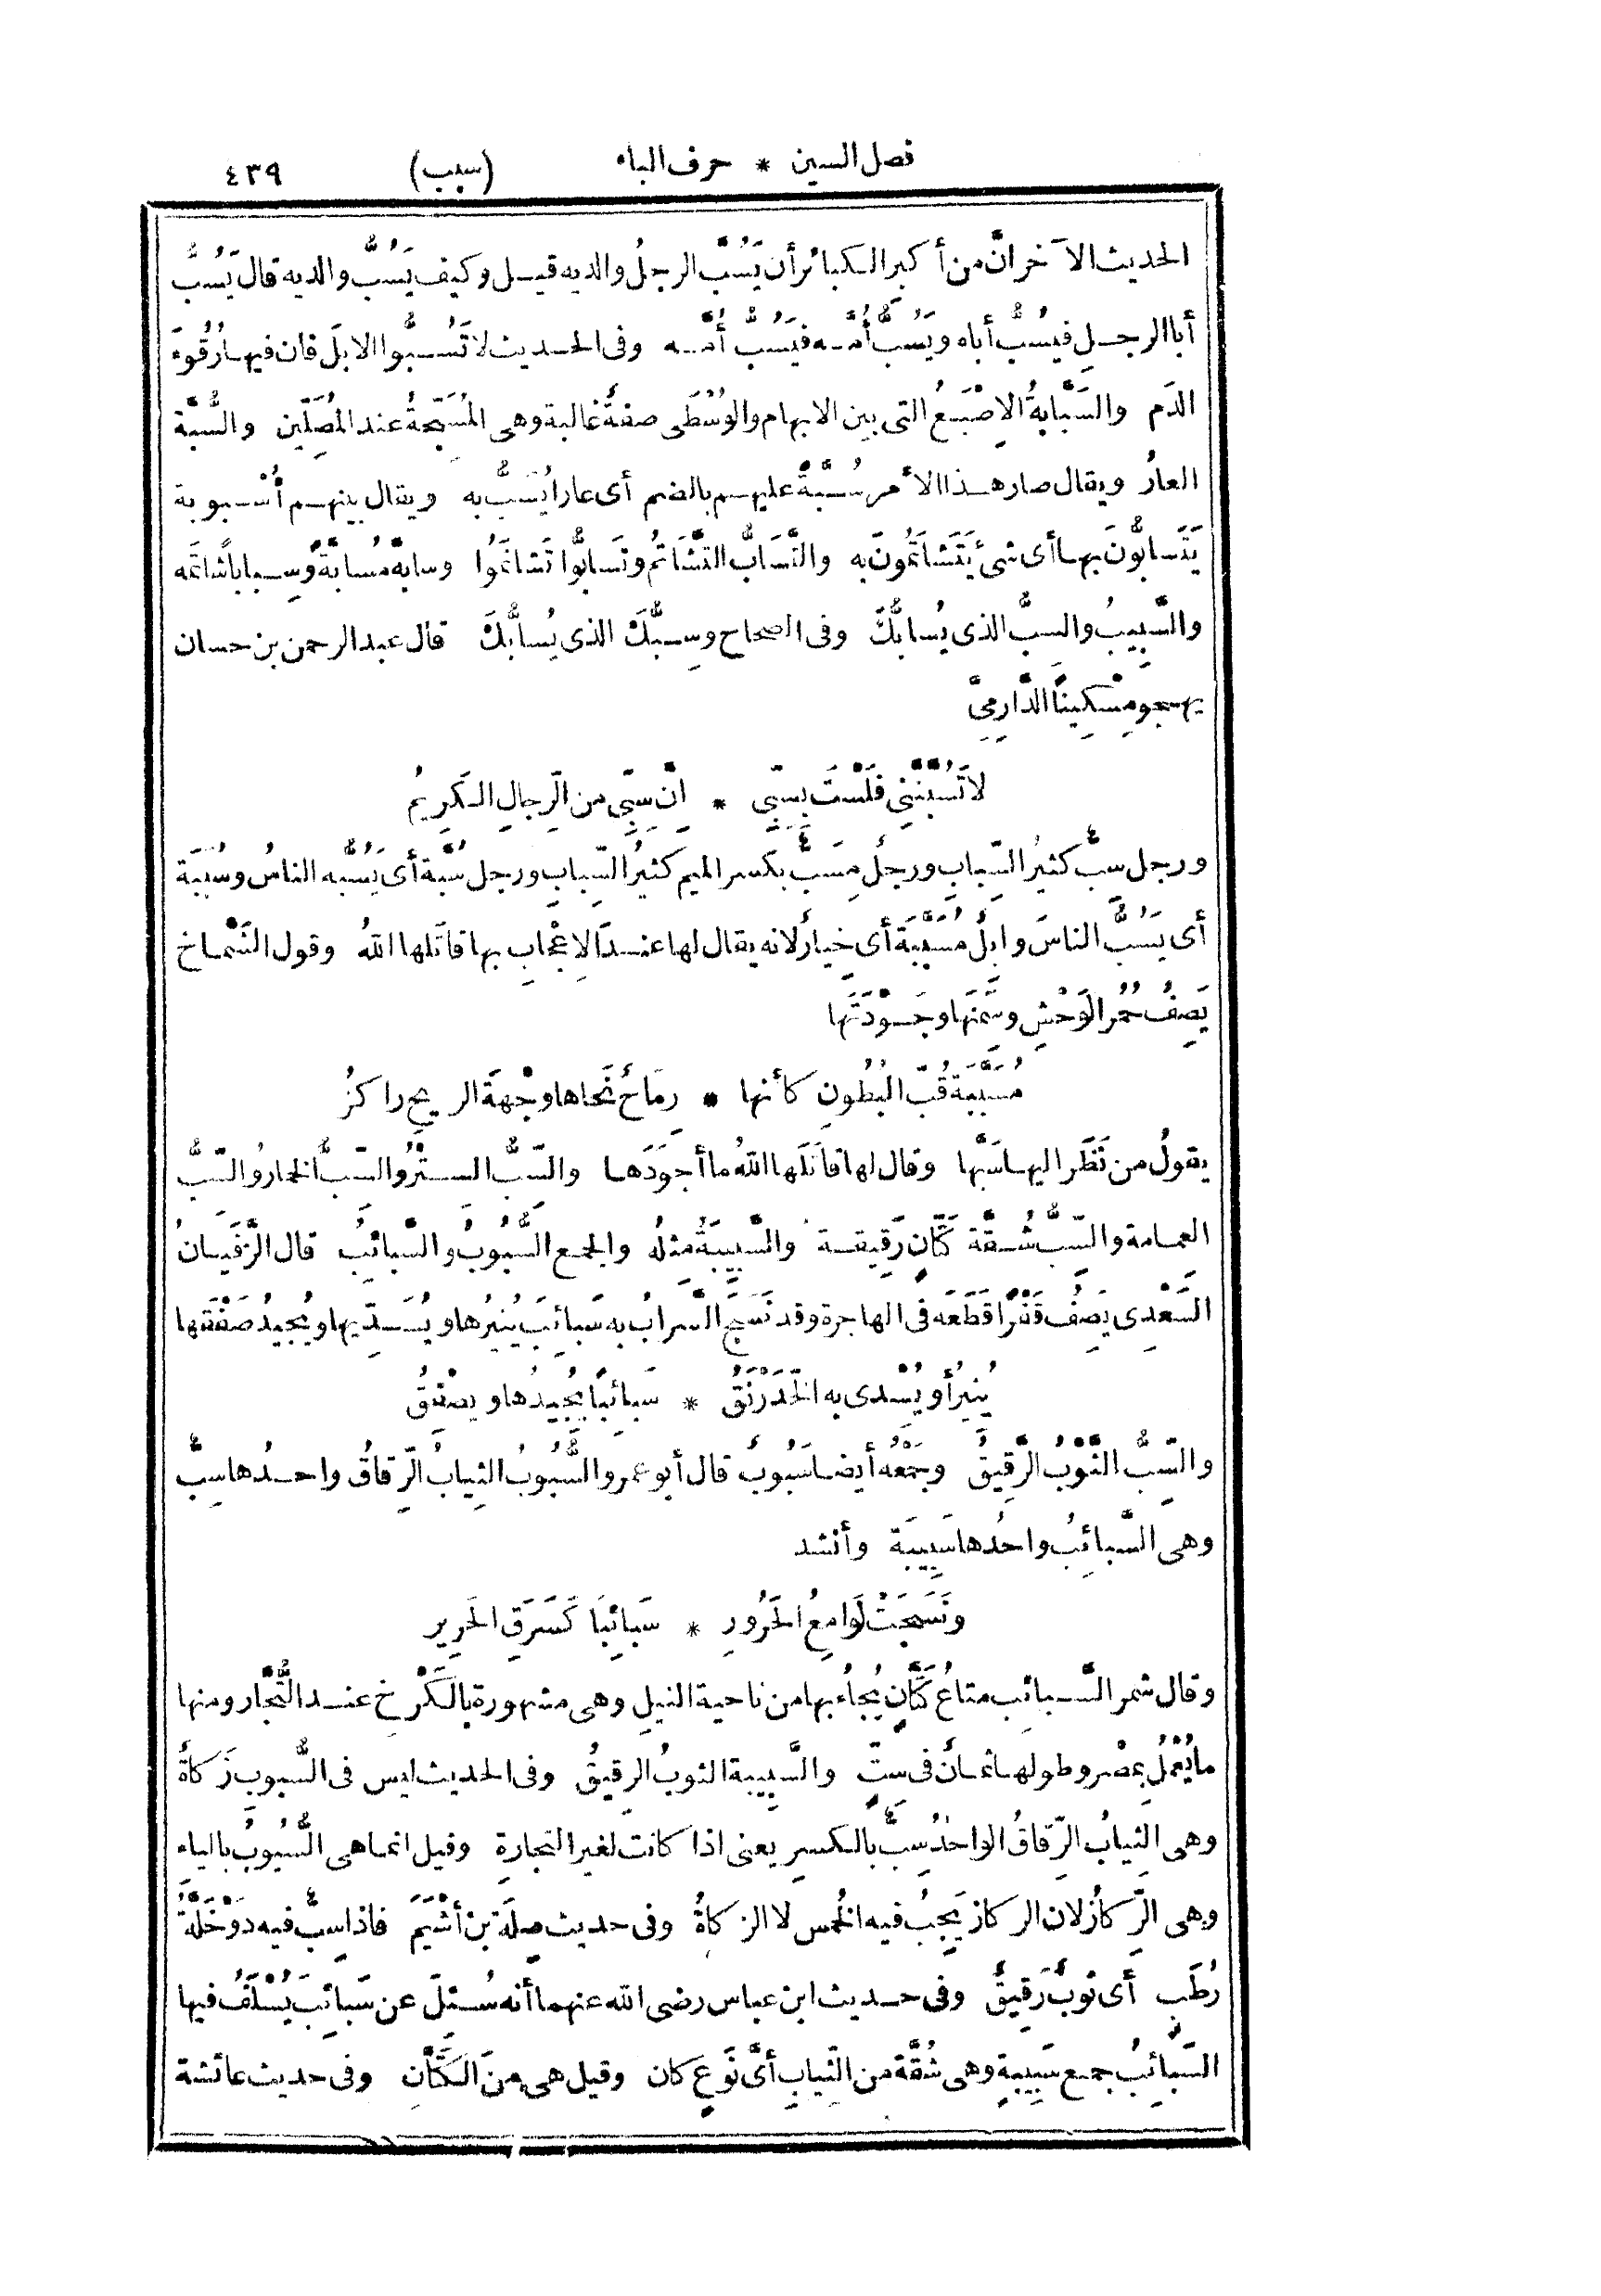 فصل السين * حرف الباء (سبب) ٤٣٩
الحديث الآخر انّ من أكبر الكبائر أن يَسُبَّ الرجلُ والديه قيل وكيف يَسُبُّ والديه قال يَسُبُّ
أبا الرجلِ فيَسُبُّ أباه ويَسُبُّ أُمَّه فيَسُبُّ أُمَّه وفى الحديث لا تَسُبُّوا الابلَ فان فيها رُقُوءَ
الدَم والسَّبَّابةُ الاِصْبَعُ التى بين الابهام والوُسْطَى صفةٌ غالبة وهى المُسَبِّحَةُ عند المُصَلِّين والسُّبَّة
العارُ ويقال صار هذا الأمر سُبَّةً عليهم بالضم أى عارا يُسَبُّ به ويقال بينهم أُسْبوبة
يَتَسابُّونَ بها أى شئ يَتَشاتَمُونَ به والتَّسَابُّ التَّشَاتُم وتَسابُّوا تَشاتَمُوا وسابَّه مُسابَّةً وسِبابا شَاتَمَه
والسَّبِيبُ والسبُّ الذى يُسابُّكَ وفى الصحاح وسِبُّكَ الذى يُسابُّكَ قال عبد الرحمن بن حسان
يهجو مِسْكِينًا الدَّارِمِيَّ
لا تَسُبَّنَّنِى فلَسْتَ بِسِبِّى * اِنّ سِبِّى من الرِّجالِ الكَرِيمُ
ورجل سبٌّ كثيرُ السِّبابِ ورجلُ مِسَبٌّ بكسر الميم كثيرُ السِّبابِ ورجل سُبَّة أى يَسُبُّه الناسُ وسُبَبَة
أى يَسُبُّ الناسَ وابلٌ مُسَبَّبَة أى خيارٌ لانه يقال لها عندَ الاِعْجابِ بها قاتَلها اللهُ وقول الشَّمَّاخ
يَصِفُ حُمُر الوَحْشِ وسِمَنَها وجَوْدَتَها
مُسَبَّبَة قُبّ البُطُونِ كأنها * رِمَاحٌ نَحَاها وِجْهةَ الريحِ راكزُ
يقولُ من نَظَر اليها سَبَّها وقال لها قاتَلَها اللهُ ما أجوَدَها والسِّبُّ السِتْرُ والسِّبُّ الخمارُ والسِّبُّ
العمامة والسِّبُّ شُقَّة كَتَّانٍ رَقِيقة والسَّبِيبَةُ مثلُه والجمع السُّبُوبُ والسَّبائِبُ قال الزَّفَيانُ
السَّعْدِى يَصِفُ قَفْرًا قَطَعَه فى الهاجرة وقد نَسَجَ السَّرابُ به سَبائِبَ يُنِيرُها ويُسَدِّيها ويُجيدُ صَفْقَها
يُنيرُ أو يُسْدى به الخَدَرْنَقُ * سَبائِبًا يُجِيدُها ويصْفِقُ
والسِّبُّ الثَّوْبُ الرَّقِيقُ وجَمْعُه أيضا سُبُوبٌ قال أبو عمرو السُّبُوبُ الثِيابُ الرِّقاقُ واحدُها سِبٌّ
وهى السَّبائِبُ واحدُها سَبِيبَة وأنشد
ونَسَجَتْ لَوامِعُ الحَرُورِ * سَبائِبَا كَسَرَقِ الحَرِيرِ
وقال شمر السَّبائب متاعُ كَتَّانٍ يُجاءُ بها من ناحية النيلِ وهى مشهورة بالكَرْخِ عند التُّجَّار ومنها
ما يُعْمَلُ بمِصْر وطولها ثمانٌ فى سِتٍّ والسَّبِيبة الثوبُ الرقِيقُ وفى الحديث ليس فى السُّبوبِ زَكاةٌ
وهى الثِيابُ الرِّقاقُ الواحدُ سِبٌّ بالكسرِ يعنى اذا كانت لغير التجارةِ وقيل انما هى السُّيُوبُ بالياء
وهى الرِّكازُ لان الركاز يَجِبُ فيه الخُمس لا الزكاةُ وفى حديث صِلَةَ بن أَشْيَمَ فاذا سِبٌّ فيه دَوْخَلَّةُ
رُطَبٍ أى ثوبٌ رَقِيقٌ وفى حديث ابن عباس رضى الله عنهما أنه سُئلَ عن سَبائِبَ يُسْلَفُ فيها
السَّبائِبُ جمع سَبِيبةٍ وهى شُقَّة من الثِّيابِ أىَّ نَوعٍ كان وقيل هى مِنَ الكَتَّانِ وفى حديث عائشة